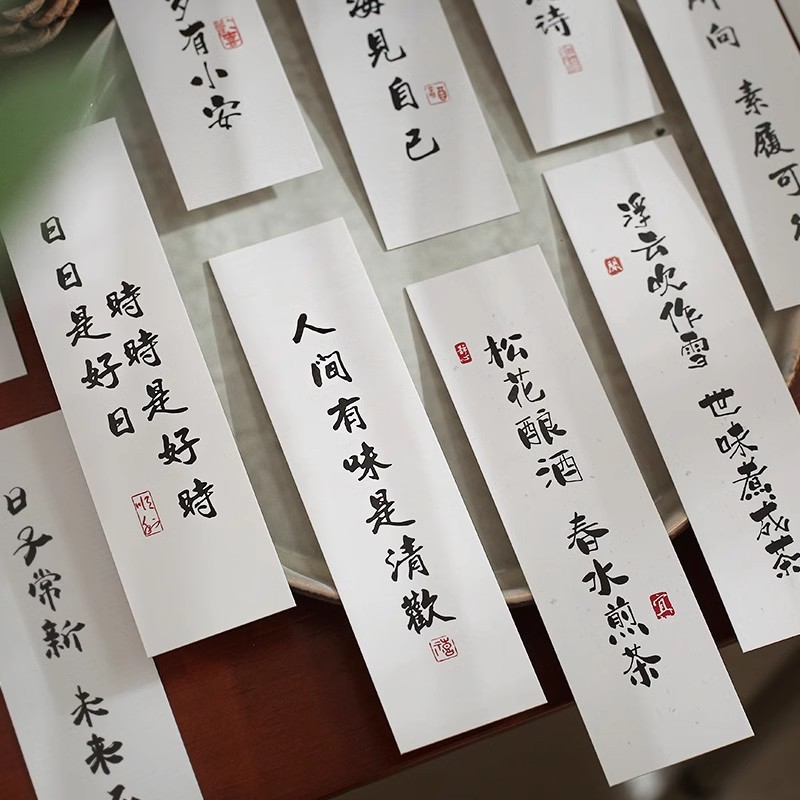 有小安
海見自己
诗
向 素履可
日日是好日
時時是好時
人間有味是清歡
禧
松花酿酒 春水煎茶
宜
浮云吹作雪 世味煮成茶
日子常新 未来